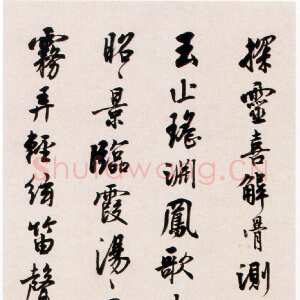 探靈喜解骨測
玉山瑤淵鳳歌
昭〻景臨霞湯〻
霧弄輕弦笛聲
Shufawang.CN